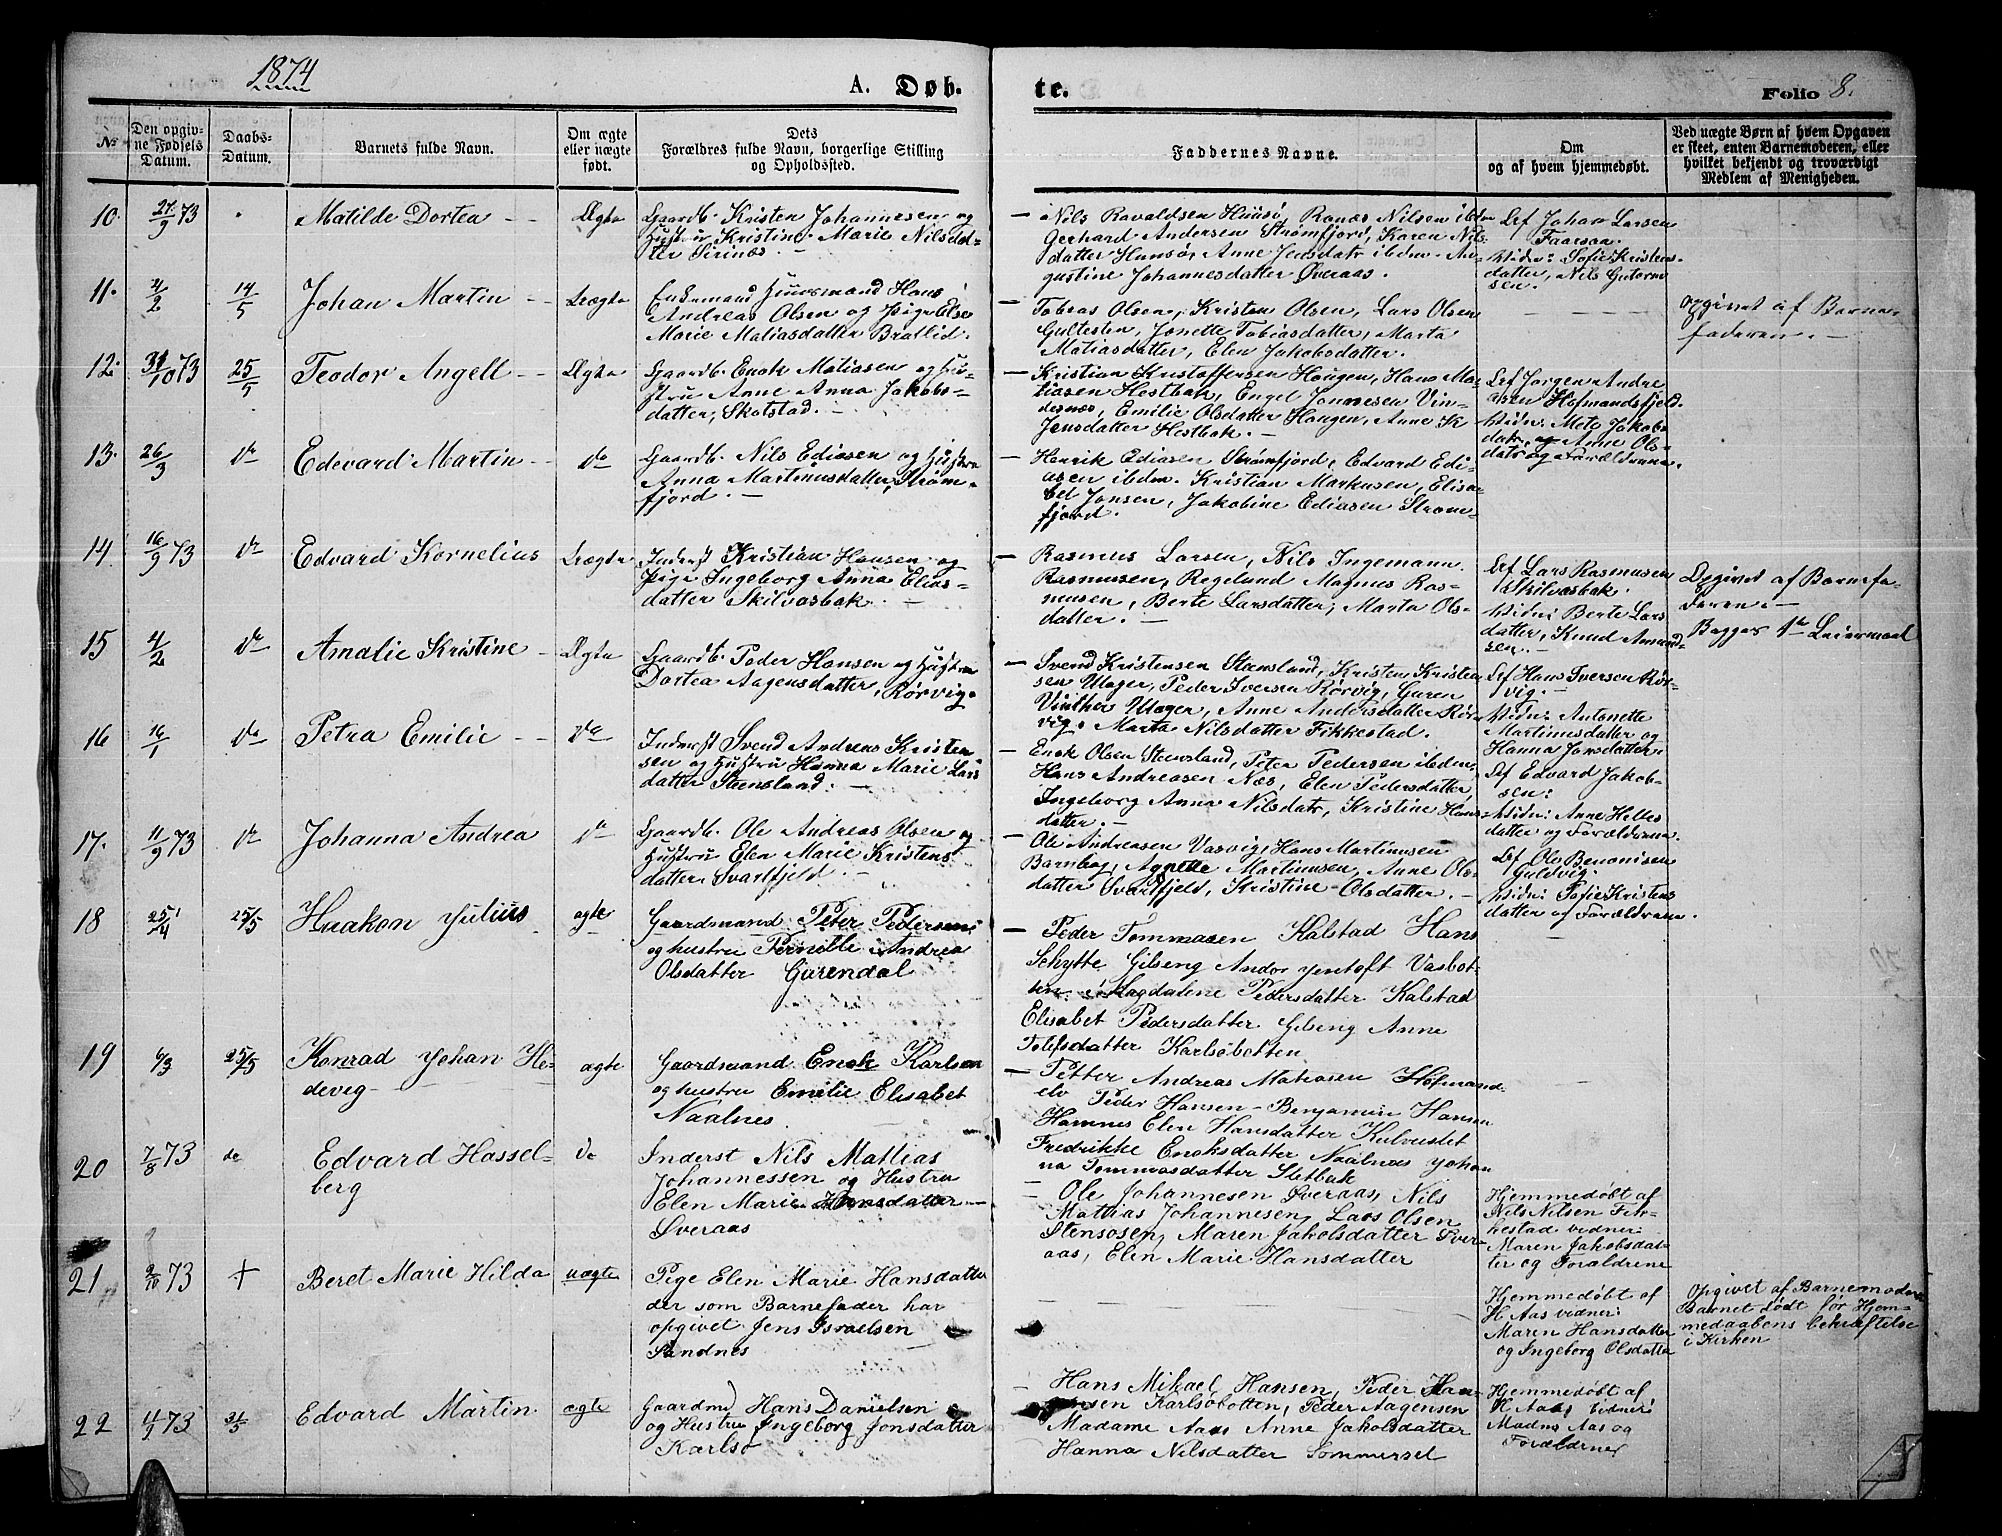 1874
A. Døb-
te.
Folio 8.
№
Den opgiv-
ne Fødsels
Datum.
Daabs-
Datum.
Barnets fulde Navn.
Om ægte
eller uægte
født.
Dets
Forældres fulde Navn, borgerlige Stilling
og Opholdssted.
Faddernes Navne.
Om
og af hvem hjemmedøbt.
Ved uægte Børn af hvem Opgaven
er skeet, enten Barnemoderen, eller
hvilket bekjendt og troværdigt
Medlem af Menigheden.
10. 27/9 73 Matilde Dortea Ægte
Gaardb. Kristen Johannesen og
Hustru Kristine Marie Nilsdat-
ter
Nils Ravaldsen Huusø, Ranæs Nilsen ibdm
Gerhard Andersen Strømfjord, Karen Nils-
datter Hunsø, Anne Jensdatr ibdm. Au-
gustine Johannesdatter Øveraas.
Def Johan Larsen
Vidn: Sofie Kristens-
datter, Nils Gutorm
sen.
11. 4/2 14/5 Johan Martin Uægte
Enkemand Huusmand Hans
Andreas Olsen og Pige Else
Marie Matiasdatter Bratlid.
Tobias Olsen, Kristen Olsen, Lars Olsen
Gultesten, Jonette Tobiasdatter, Marta
Matiasdatter, Elen Jakobsdatter.
Opgivet af Barne-
faderen.
12. 31/10 73 25/5 Teodor Angell Ægte
Gaardb. Enok Matiasen og Hu-
stru Anne Anna Jakobs-
datter, Skotstad.
Kristian Kristoffersen Haugen, Hans Ma-
tiasen Hestbak, Engel Jonnesen Vin-
desnæs, Emilie Olsdatter Haugen, Anne K
Jensdatter Hestbak.
Def Jørgen Andre
asen Hofmandsfjeld.
Vidn: Mete Jakobs
datr, og Anne Ols-
datr og Forældrene.
13. 26/3 do Edevard Martin do
Gaardb. Nils Ediasen og Hustru
Anna Martinusdatter, Strøm-
fjord.
Henrik Ediasen Strømfjord, Edvard Edi-
asen ibdm. Kristian Markusen, Elisa-
bet Jonsen, Jakobine Ediasen Strøm-
fjord.
14. 16/9 73 do Edvard Kornelius Uægte
Inderst Kristian Hansen og
Pige Ingeborg Anna Elias-
datter Skilvasbak.
Rasmus Larsen, Nils Ingemann
Rasmusen, Regeland Magnus Ras-
musen, Berte Larsdatter, Marta Ols-
datter.
Def Lars Rasmusen
Skilvasbak.
Vidn: Berte Lars
datter, Knud Amund-
sen.
Opgivet af Barnefa-
deren.
Begges 1ste Leiermaal
15 4/2 do Amalie Kristine Ægte
Gaardb. Peder Hansen og Hustru
Dortea Aagensdatter, Rørvig.
Svend Kristensen Steensland, Kristen Kristen
sen Ulager, Peder Iversen Rørvig, Guren
Vinther Ulager, Anne Andersdatter Rør-
vig. Marta Nilsdatter Fikkestad.
Def Hans Iversen Rør-
vig.
Vidn: Antonette
Martinusdatter og
Hanna Jonsdatter.
16 16/1 do Petra Emilie do
Inderst Svend Andreas Kristen
sen og Hustru Hanna Marie Lars
datter Steensland.
Enok Olsen Steensland, Peter Pedersen ibdm,
Hans Andreasen Næs, Elen Pedersdatter
Ingeborg Anna Nilsdatr, Kristine Hans-
datter.
Def Edvard Jakob-
sen:
Vidn: Anne Helles
datter og Forældrene.
17. 11/9 73 do Johanna Andrea do
Gaardb. Ole Andreas Olsen og
Hustru Elen Marie Kristens
datter Svartfjeld.
Ole Andreasen Vasvig, Hans Martinusen
Barnbog, Agnette Martinusen, Anne Ols-
datter Svartfjeld, Kristine Olsdatter.
Def Ole Benonisen
Guldvig.
Vidn: Sofie Kristens
datter og Forældrene.
18 25/4 25/5 Haakon Julius ægte
Gaardmand Peter Pedersen
og hustru Pernille Andrea
Olsdatter Gurendal
Peder Tommasen Kalstad Hans
Schytte Gilseng Andor Jentoft Vasbot-
ten Magdalene Pedersdatter Kalstad
Elisabet Pedersdatter Gilseng Anne
Tolefsdatter Karlsøbotten
19 6/3 25/5 Konrad Johan He-
devig ægte
Gaardmand Enok Karlsen
og hustru Emilie Elisabet
Naalnes
Petter Andreas Matiasen Hofmands-
elv Peder Hansen Benjamin Hansen
Hamnes Elen Hansdatter
Fredrikke Enoksdatter Naalnes Johan
na Tommasdatter Sletbak
20 7/8 73 do Edvard Hassel-
berg do
Inderst Nils Mattias
Johannessen og Hustru
Elen Marie Hansdatter
Øveraas
Ole Johannesen Øveraas, Nils
Mathias Johannesen, Lars Olsen
Stensosen, Maren Jakobsdatter Øver-
aas, Elen Marie Hansdatter
Hjemmedøbt af
Nils Nilsen Fik-
kestad vidner:
Maren Jakobsdat-
ter og Forældrene
21 2/10 73 + Beret Marie Hilda uægte
Pige Elen Marie Hansdatter
der som Barnefader har
opgivet Jens Israelsen
Sandnes
Hjemmedøbt af
H Aas vidner:
Maren Hansdatter
og Ingeborg Olsdatter
Opgivet af Barnemoderen
Barnet dødt før Hjem-
medaabens bekræftelse
i Kirken
22 4/9 73 31/5 Edvard Martin ægte
Gaardmd Hans Danielsen
og Hustru Ingeborg Jonsdatter
Karlsø
Hans Mikael Hansen, Peder Han-
sen Karlsøbotten, Peder Aagensen
Madame Aas Anne Jakobsdatter
Hanna Nilsdatter Sommersel
Hjemmedøbt af
H Aas vidner:
Madme Aas og
Forældrene